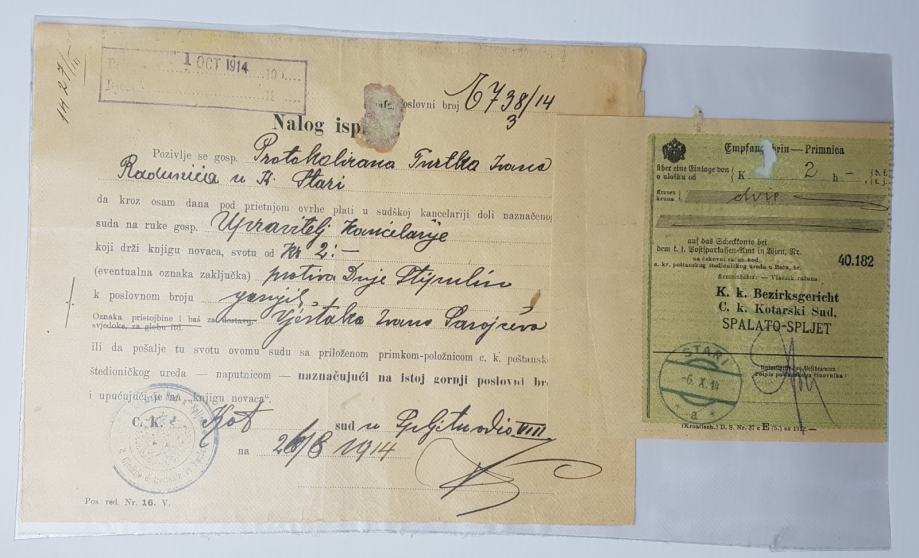 1 OCT 1914
poslovni broj 6738/14
3
Nalog isp
Pozivlje se gosp. Protokolirana Tvrtka Ivana
Radunića u K. Stari
da kroz osam dana pod prietnjom ovrhe plati u sudskoj kancelariji doli naznačeno
suda na ruke gosp. Upravitelj kancelarije
koji drži knjigu novaca, svotu od Kr 2:—
(eventualna oznaka zaključka) protiva Duje
k poslovnom broju
Oznaka pristojbine i baš za dostavu,
svjedoke, za globu itd. Vještaka Ivana
ili da pošalje tu svotu ovomu sudu sa priloženom primkom-položnicom c. k. poštansk
štedioničkog ureda — naputnicom — naznačujući na istoj gornji poslovni br
i upućujući je na „knjigu novaca“.
C. K. Kot sud u Spljetu odio VIII
na 28/8 1914
Pos. red. Nr. 16. V.
Empfang hein — Primnica
über eine Einlage von
o ulošku od K 2 h —
Kronen
kruna dvie
auf das Scheckkonto bei
dem k. k. Postsparkassen-Amt in Wien, Nr.
na čekovni račun kod
c. kr. poštanskog štedioničkog ureda u Beču, br. 40.182
K. k. Bezirksgericht
C. k. Kotarski Sud,
SPALATO-SPLJET
STARI
-6. X. 14
a
Potpis poštanskoga činovnika
(Kroatisch.) D. S. Nr. 37 E